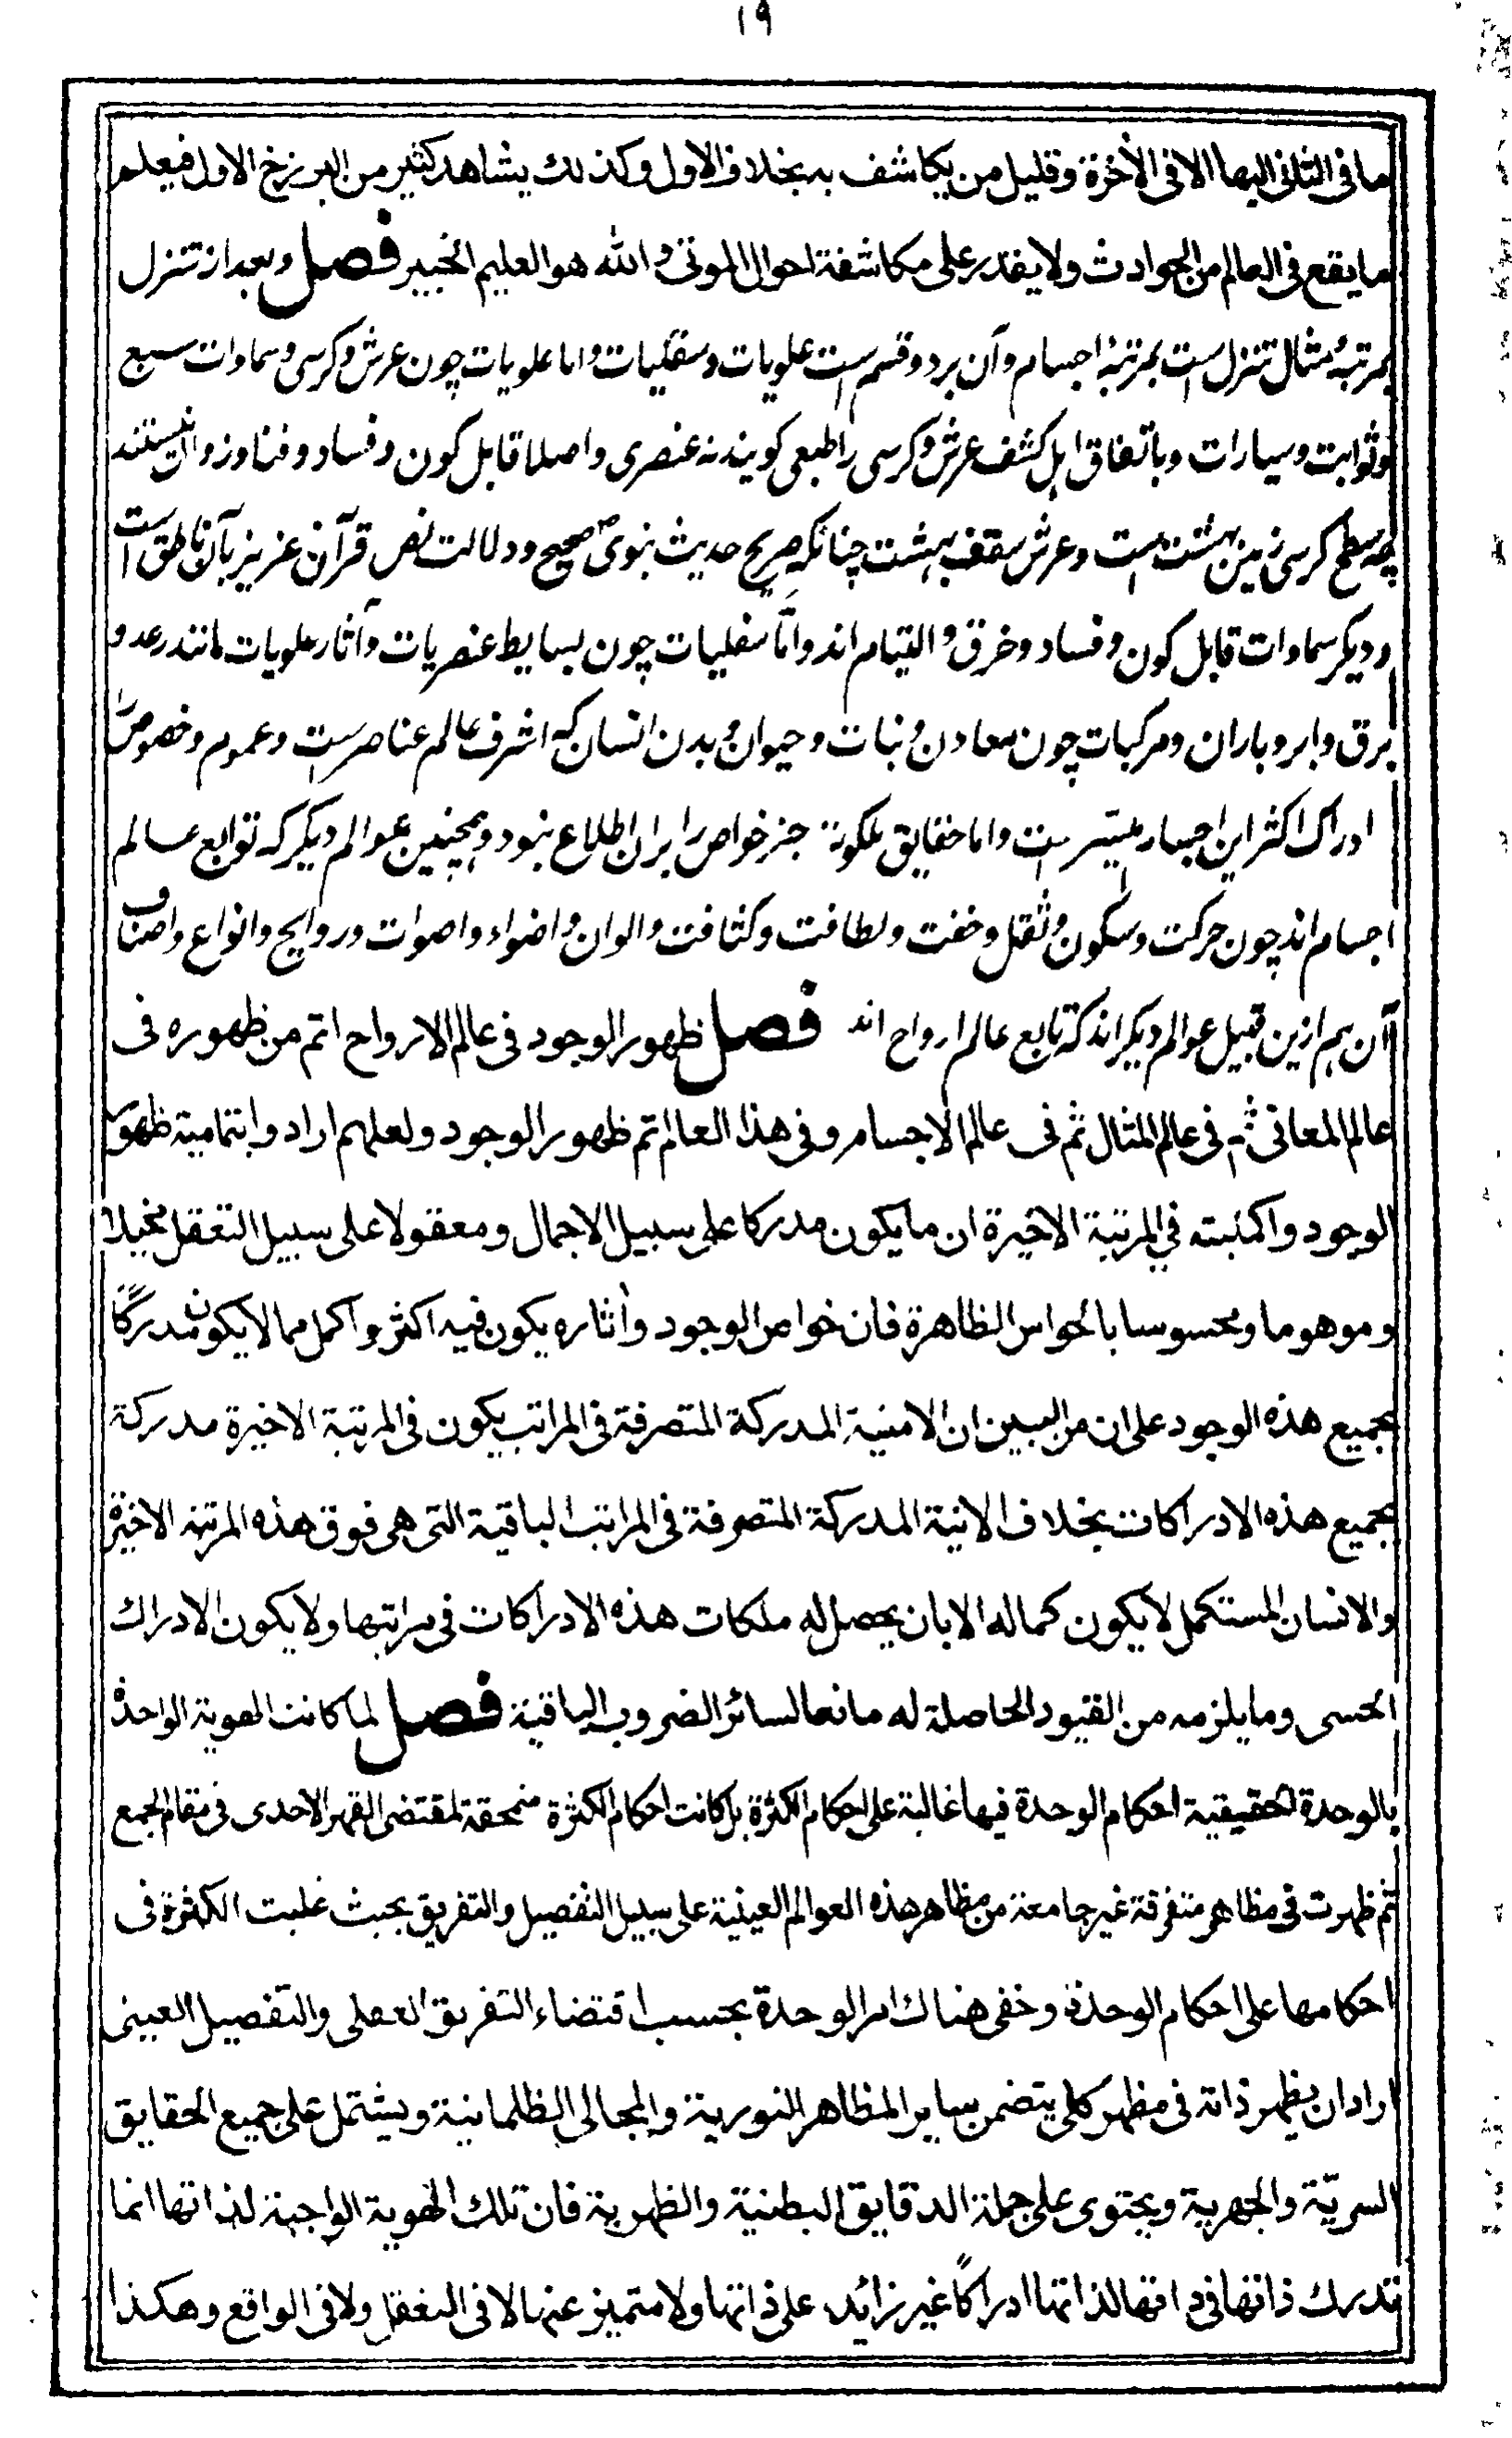 ١٩
ما فى الثانى اليها الا فى الأخرة وقليل من يكاشف به بخلاف الاول وكذلك يشاهد كثير من البرزخ الاول فيعلم
ما يقع فى العالم من الحوادث ولا يقدر على مكاشفة احوال الموتى والله هو العليم الخبير فصل وبعد از تنزل
بمرتبۂ مثال تنزل است بمرتبۂ اجسام وآن بر دو قسم است علويات وسفليات واما علويات چون عرش وكرسى وسماوات سبع
وثوابت وسيارات وباتفاق اہل كشف عرش وكرسى را طبعى كويند نہ عنصرى واصلا قابل كون وفساد وفنا وزوال نيستند
چہ سطح كرسى زمين بہشت است وعرش سقف بہشت چنانكہ صريح حديث نبوى ؐ صحيح ودلالت نص قرآن عزيز بآن ناطق است
وديكر سماوات قابل كون وفساد وخرق والتيام اند وامّا سفليات چون بسايط عنصريات وآثار علويات مانند رعد و
برق وابر وباران ومركبات چون معادن ونبات وحيوان وبدن انسان كہ اشرف عالم عناصر است وعموم وخصوص را
ادراك اكثر اين اجسام ميسر است واما حقايق ملكوتہ جز خواص را بران اطلاع نبود وہمچنين عوالم ديكر كہ توابع عالم
اجسام اند چون حركت وسكون وثقل وخفت ولطافت وكثافت والوان واضواء واصوات وروايح وانواع واصناف
آن ہم ازين قبيل عوالم ديكر اند كہ تابع عالم ارواح اند فصل ظهور الوجود فى عالم الارواح اتم من ظهوره فى
عالم المعانى ثم فى عالم المثال ثم فى عالم الاجسام وفى هذا العالم اتم ظهور الوجود ولعلهم ارادوا بتمامية ظهور
الوجود واكمليته في المرتبة الاخيرة ان ما يكون مدركا على سبيل الاجمال ومعقولا على سبيل التعقل مخيلا
وموهوما ومحسوسا بالحواس الظاهرة فان خواص الوجود وأثاره يكون فيه اكثر واكمل مما لا يكون مدركًا
بجميع هذه الوجود على ان من البين ان الامنية المدركة المتصرفة فى المراتب يكون فى المرتبة الاخيرة مدركة
بجميع هذه الادراكات بخلاف الانية المدركة المتصرفة فى المراتب الباقية التى هى فوق هذه المرتبة الاخيرة
والانسان المستكمل لا يكون كماله الا بان يحصل له ملكات هذه الادراكات فى مراتبها ولا يكون الادراك
الحسى وما يلزمه من القيود الحاصلة له مانعا لسائر الضروب الباقية فصل لما كانت الهوية الواحدة
بالوحدة الحقيقية احكام الوحدة فيها غالبة على احكام الكثرة بل كانت احكام الكثرة منمحقة لمقتضى القهر الاحدى فى مقام الجمع
ثم ظهرت فى مظاهر متفرقة غير جامعة من مظاهر هذه العوالم العينية على سبيل التفصيل والتفريق بحيث غلبت الكثرة فى
احكامها على احكام الوحدة وخفى هناك امر الوحدة بحسب اقتضاء التفريق الفعلى والتفصيل العينى
اراد ان يظهر ذاته فى مظهر كلى يتضمن ساير المظاهر النورية والمجالى الظلمانية ويشتمل على جميع الحقايق
السريّة والجهرية ويحتوى على جملة الدقايق البطنية والظهرية فان تلك الهوية الواجبة لذاتها انما
تدرك ذاتها فى ذاتها لذاتها ادراكًا غير زائد على ذاتها ولا متميز عنها لا فى التعقل ولا فى الواقع وهكذا